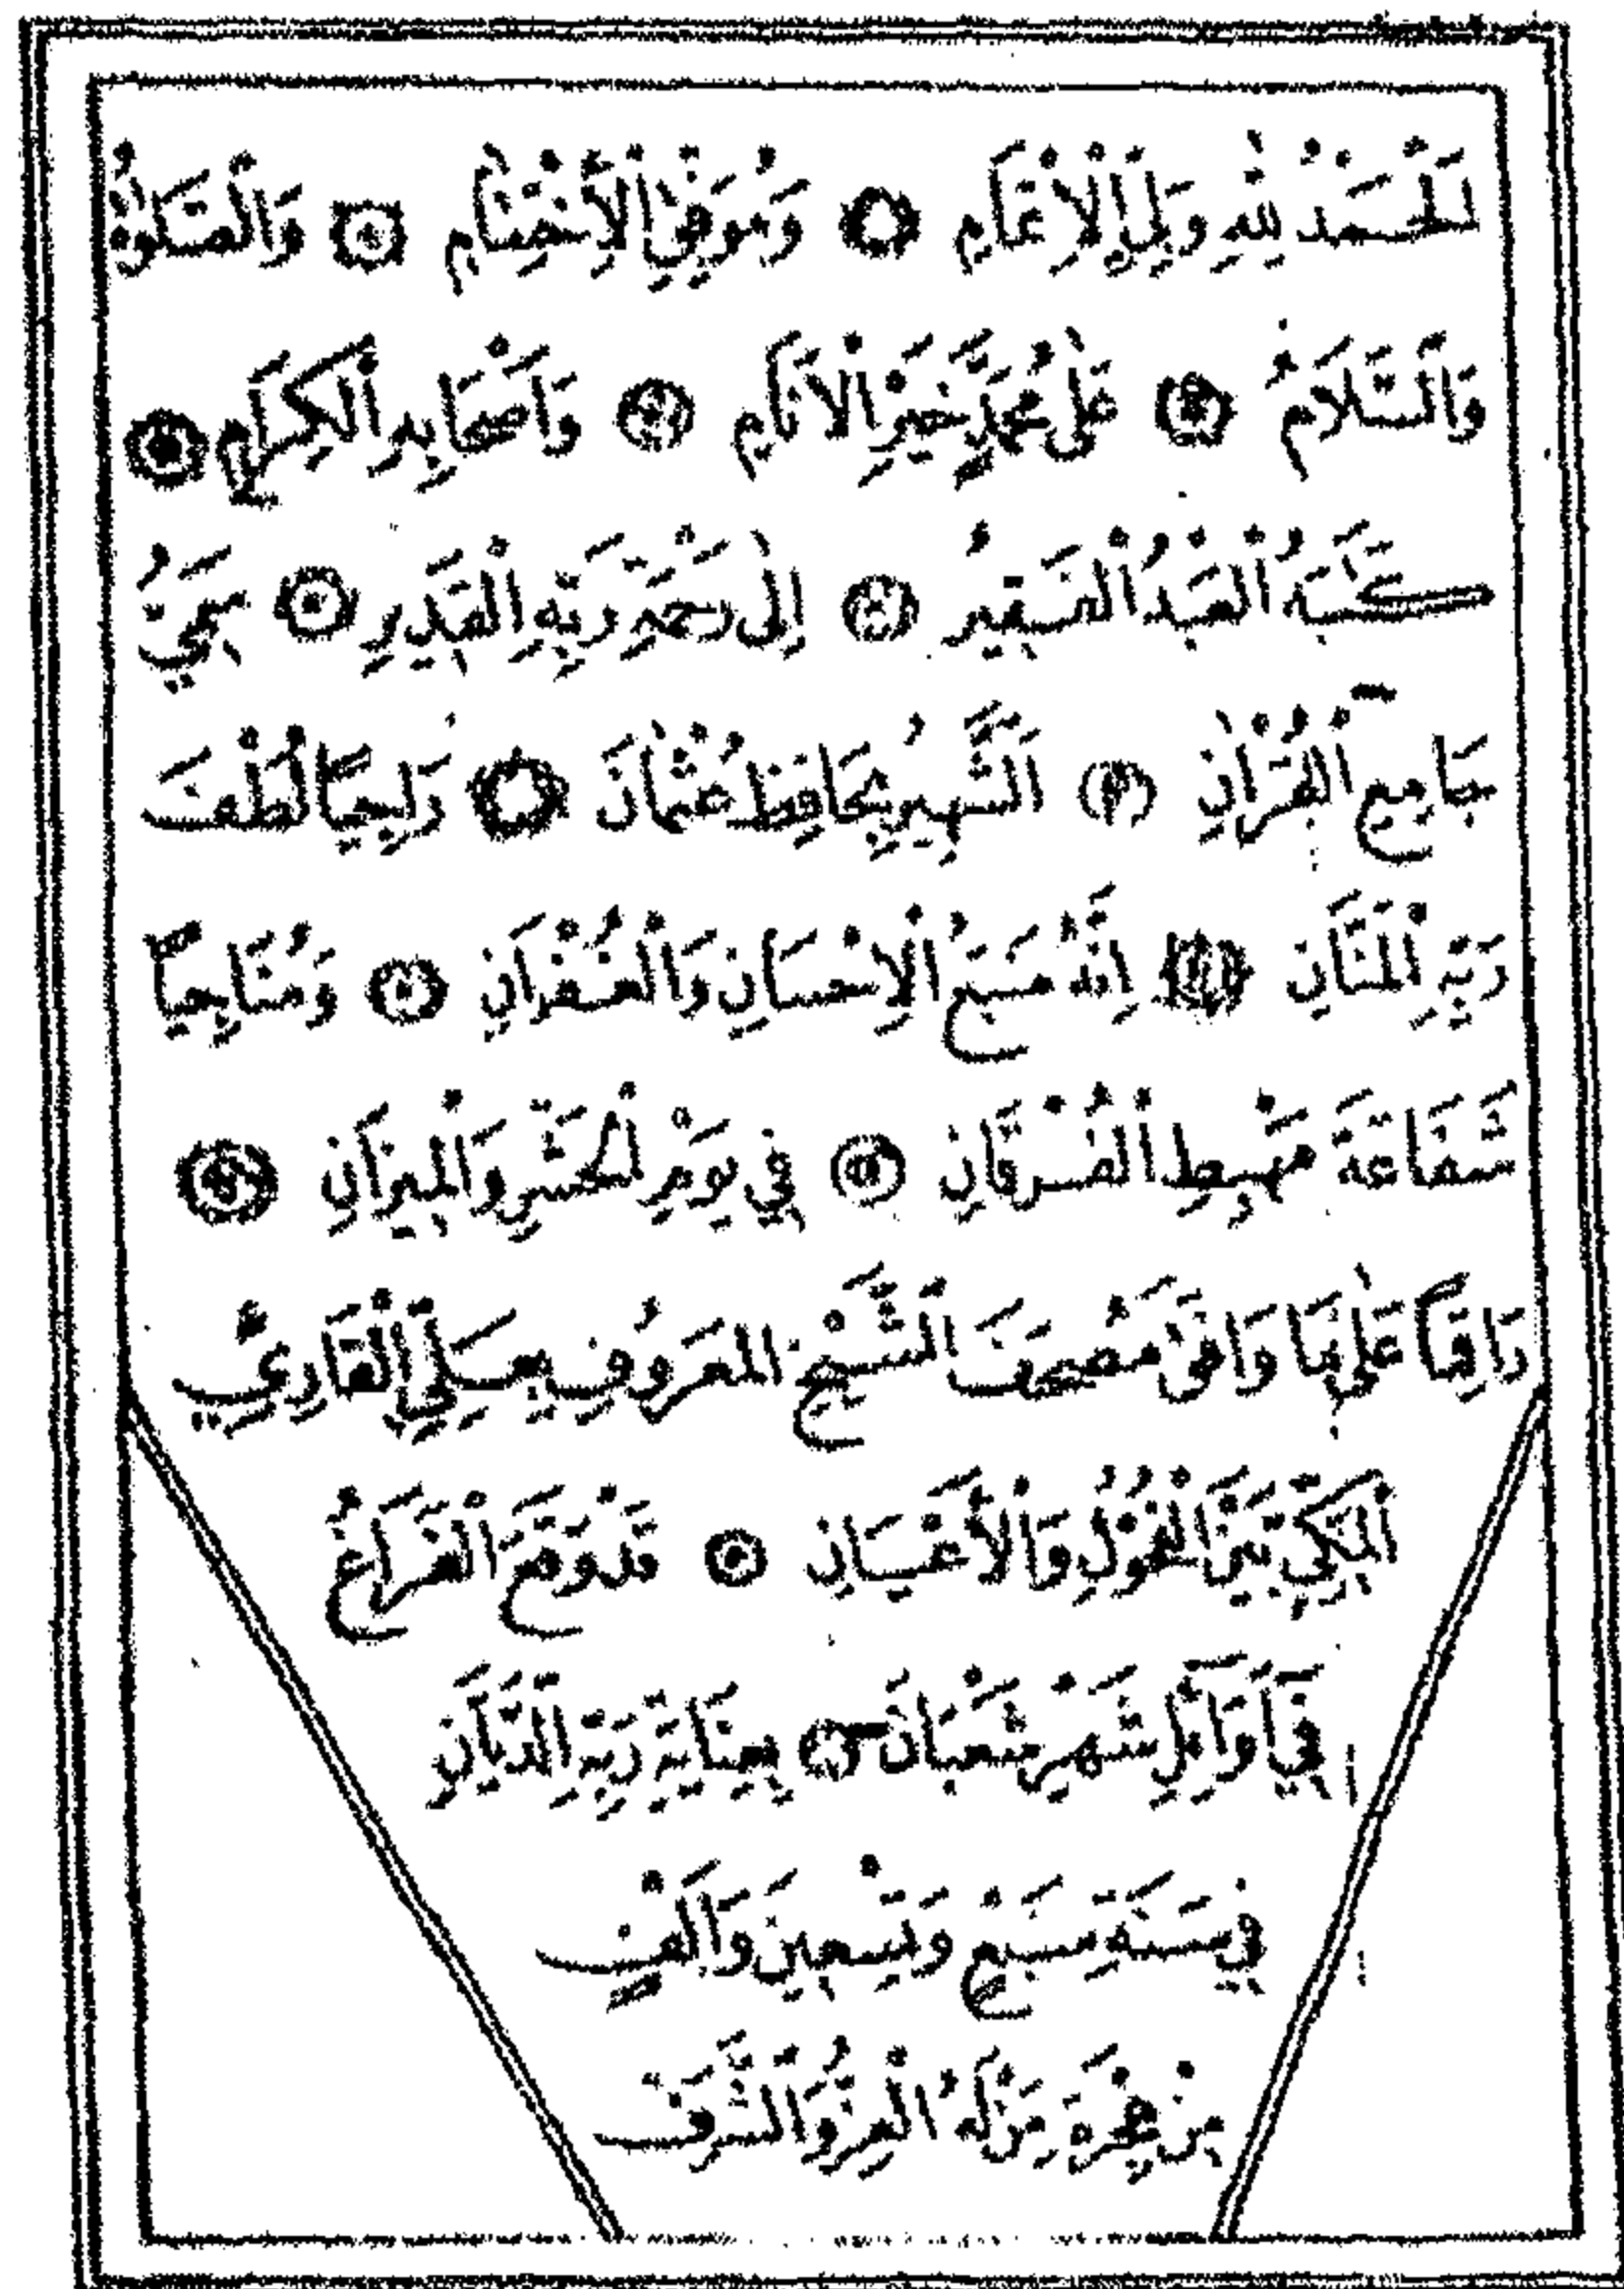 اَلْحَمْدُ لِلّٰهِ وَلِيِّ الْاِنْعَامِ ۞ وَمُوَفِّقِ الْاِخْتِتَامِ ۞ وَالصَّلٰوةُ
وَالسَّلَامُ ۞ عَلٰى مُحَمَّدٍ خَيْرِ الْاَنَامِ ۞ وَاَصْحَابِهِ الْكِرَامِ ۞
كَتَبَهُ الْعَبْدُ الْفَقِيرُ ۞ اِلٰى رَحْمَةِ رَبِّهِ الْقَدِيرِ ۞ سَمِيُّ
جَامِعِ الْقُرْاٰنِ ۞ اَلشَّهِيرُ بِحَافِظْ عُثْمَانَ ۞ رَاجِيًا لُطْفَ
رَبِّهِ الْمَنَّانِ ۞ اِنَّهُ مَنْبَعُ الْاِحْسَانِ وَالْغُفْرَانِ ۞ وَمُنَاجِيًا
شَفَاعَةَ مَهْبِطِ الْفُرْقَانِ ۞ فِي يَوْمِ الْحَشْرِ وَالْمِيزَانِ ۞
رَاقِمًا عَلٰى مَا وَافَقَ مُصْحَفَ الشَّيْخِ الْمَعْرُوفِ بِعَلِيِّ الْقَارِيِّ
الْمَكِّيِّ بَيْنَ الْفُحُولِ وَالْاَعْيَانِ ۞ قَدْ وَقَعَ الْفَرَاغُ
فِي اَوَائِلِ شَهْرِ شَعْبَانَ ۞ بِعِنَايَةِ رَبِّهِ الدَّيَّانِ
فِي سَنَةِ سَبْعٍ وَتِسْعِينَ وَاَلْفٍ
مِنْ هِجْرَةِ مَنْ لَهُ الْعِزُّ وَالشَّرَفُ